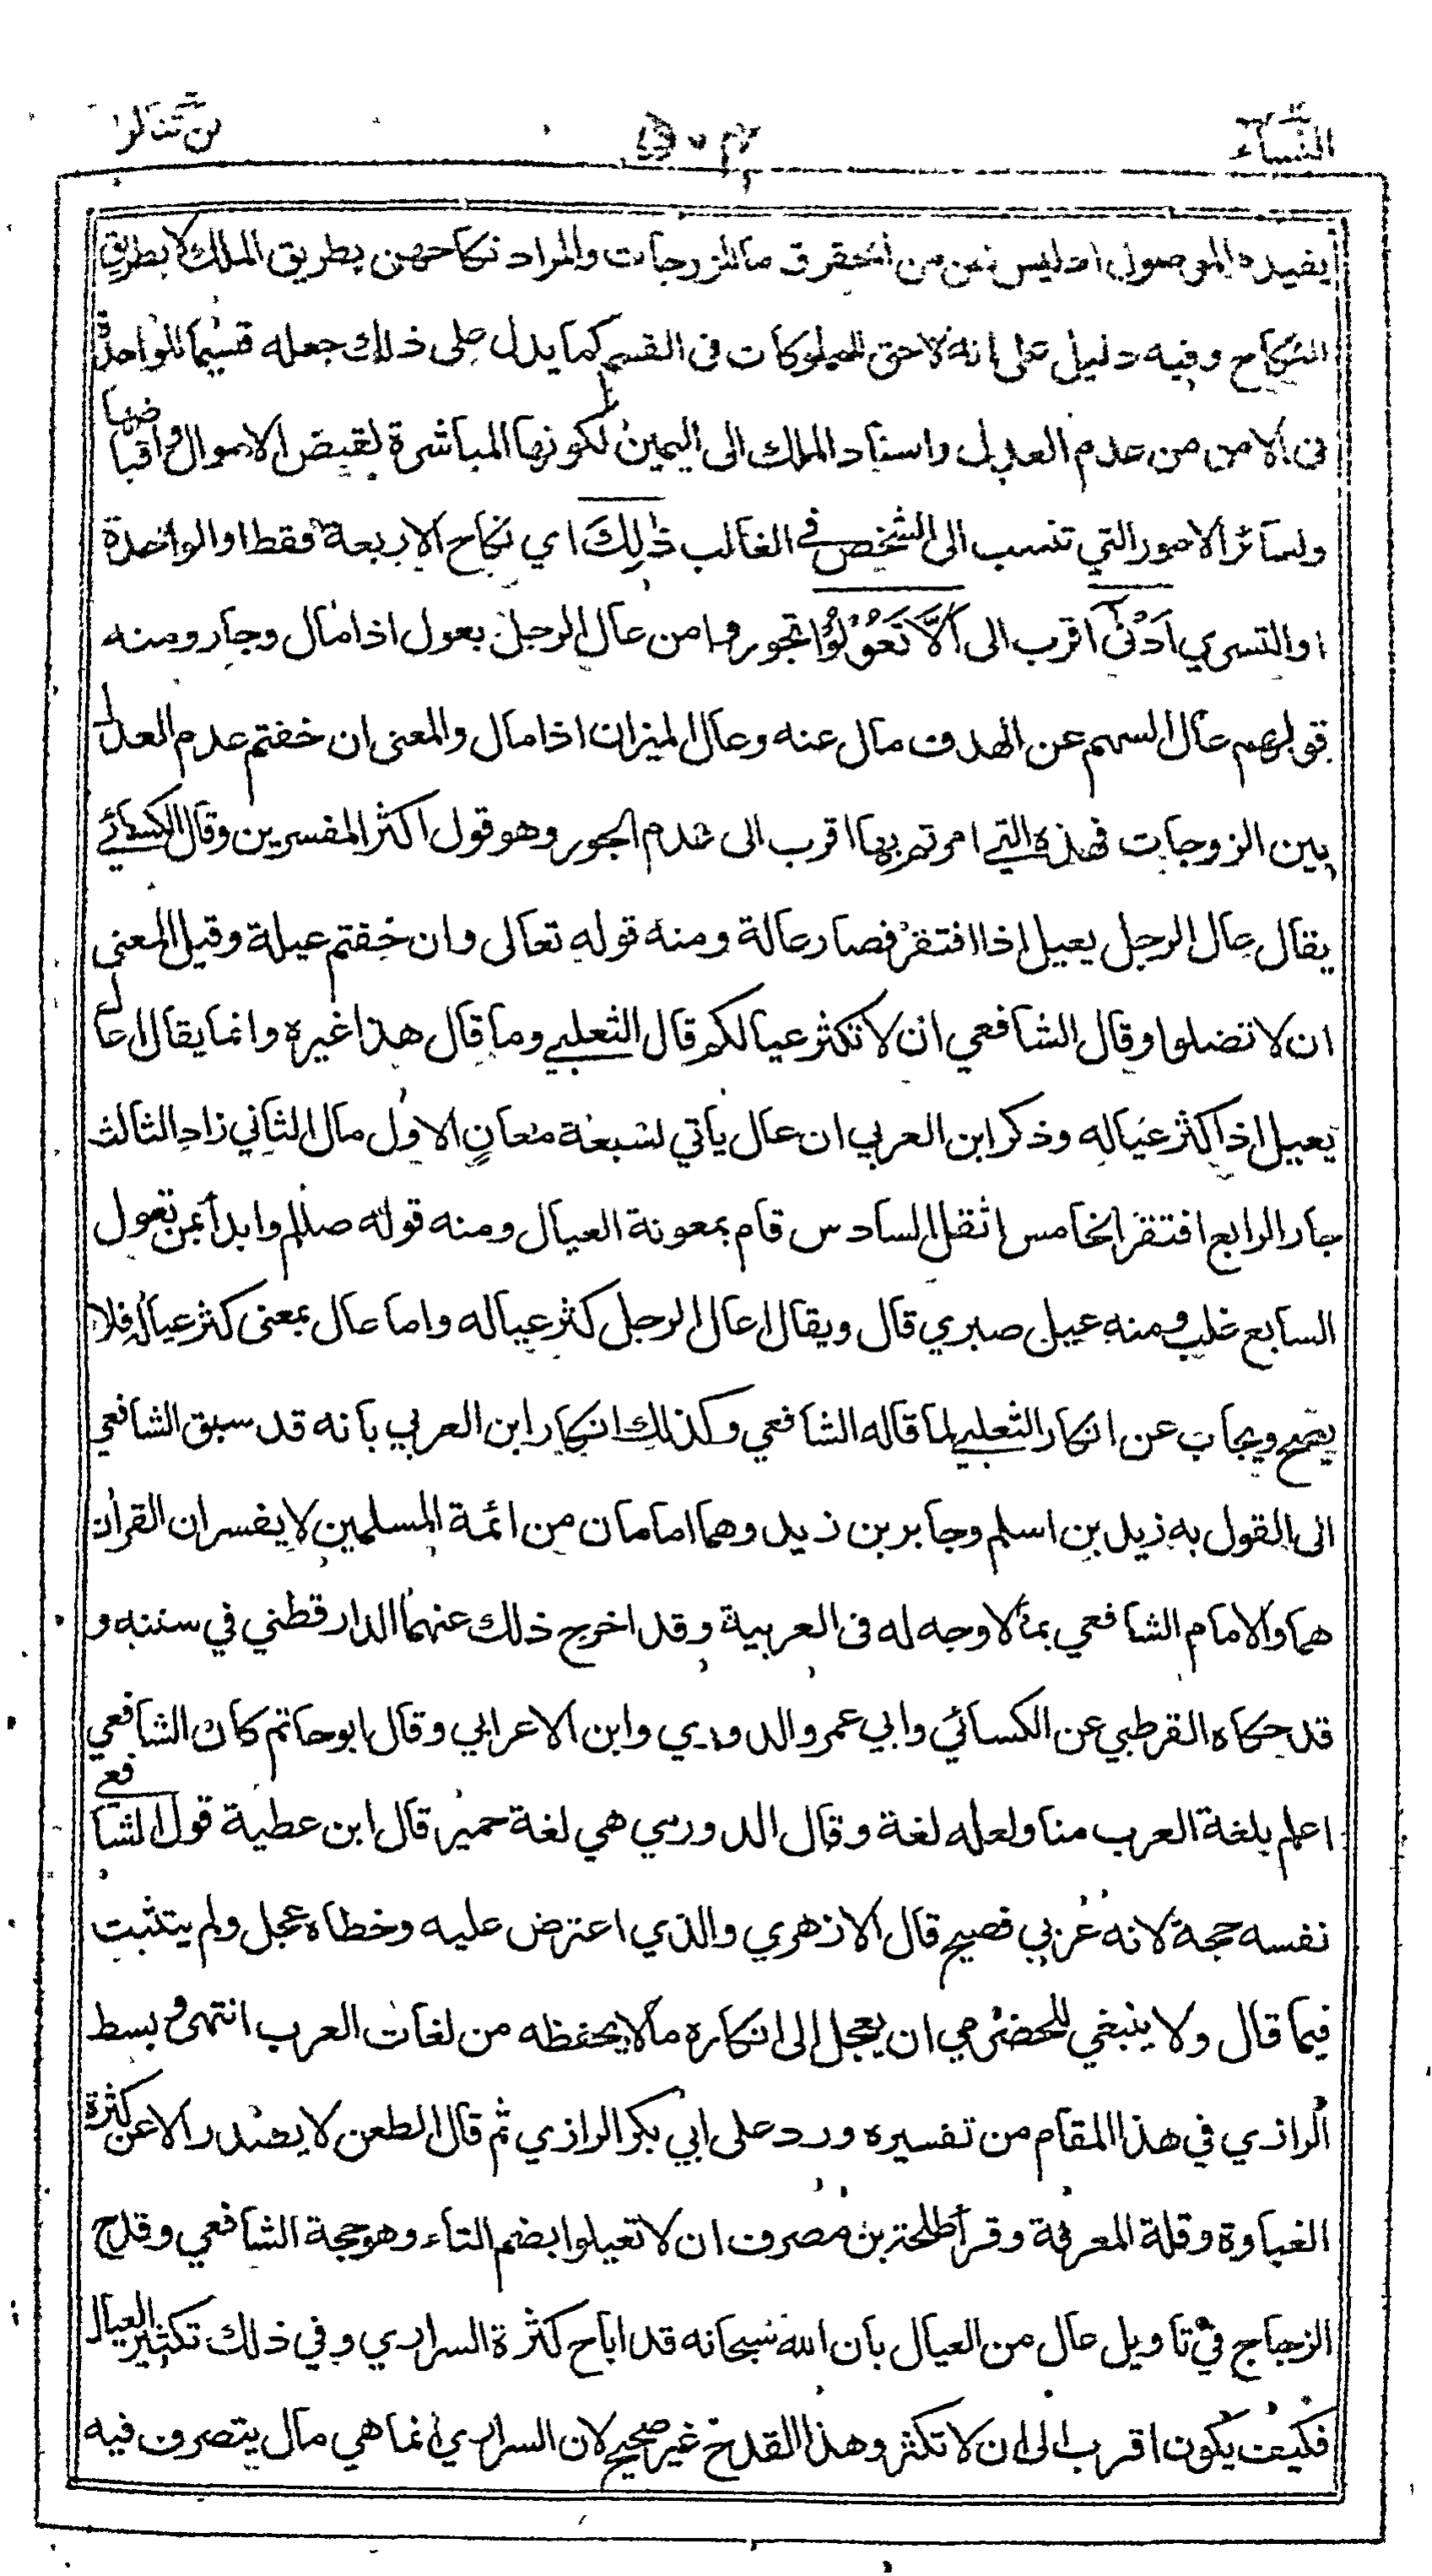 النساء ٥٠٣ لن تنالوا
يفيده الموصول اذ ليس لهن من الحقوق ما للزوجات والمراد نكاحهن بطريق الملك لا بطريق
النكاح وفيه دليل على انه لا حق للمملوكات في القسم كما يدل على ذلك جعله قسيما للواحدة
في الامن من عدم العدل واسناد الملك الى اليمين لكونها المباشرة لقبض الاموال واقباضها
ولسائر الامور التي تنسب الى الشخص في الغالب ذٰلِكَ اي نكاح الاربعة فقط او الواحدة
او التسري اَدْنىٰٓ اقرب الى اَلَّا تَعُوْلُوْا تجوروا من عال الرجل يعول اذا مال وجار ومنه
قولهم عال السهم عن الهدف مال عنه وعال الميزان اذا مال والمعنى ان خفتم عدم العدل
بين الزوجات فهذه التي امرتم بها اقرب الى عدم الجور وهو قول اكثر المفسرين وقال الكسائي
يقال عال الرجل يعيل اذا افتقر فصار عالة ومنه قوله تعالى وان خفتم عيلة وقيل المعنى
ان لا تضلوا وقال الشافعي ان لا تكثر عيالكم قال الثعلبي وما قال هذا غيره وانما يقال اعال
يعيل اذا كثر عياله وذكر ابن العربي ان عال يأتي لسبعة معانٍ الاول مال الثاني زاد الثالث
جار الرابع افتقر الخامس اثقل السادس قام بمعونة العيال ومنه قوله صللم وابدأ بمن تعول
السابع غلب ومنه عيل صبري قال ويقال اعال الرجل كثر عياله واما عال بمعنى كثر عياله فلا
يصح ويجاب عن انكار الثعلبي لما قاله الشافعي وكذلك انكار ابن العربي بأنه قد سبق الشافعي
الى القول به زيد بن اسلم وجابر بن زيد وهما امامان من ائمة المسلمين لا يفسران القرآن
هما والامام الشافعي بما لا وجه له في العربية وقد اخرج ذلك عنهما الدارقطني في سننه و
قد حكاه القرطبي عن الكسائي وابي عمر والدوري وابن الاعرابي وقال ابو حاتم كان الشافعي
اعلم بلغة العرب منا ولعله لغة وقال الدوري هي لغة حمير قال ابن عطية قول الشافعي
نفسه حجة لانه عربي فصيح قال الازهري والذي اعترض عليه وخطاه عجل ولم يتثبت
فيما قال ولا ينبغي للحضري ان يعجل الى انكاره ما لا يحفظه من لغات العرب انتهى وبسط
الرازي في هذا المقام من تفسيره ورد على ابي بكر الرازي ثم قال الطعن لا يصدر الا عن كثرة
الغباوة وقلة المعرفة وقرأ طلحة بن مصرف ان لا تعيلوا بضم التاء وهو حجة الشافعي وقدح
الزجاج في تأويل عال من العيال بأن الله سبحانه قد اباح كثرة السراري وفي ذلك تكثير العيال
فكيف يكون اقرب الى ان لا تكثر وهذا القدح غير صحيح لان السراري انما هي مال يتصرف فيه